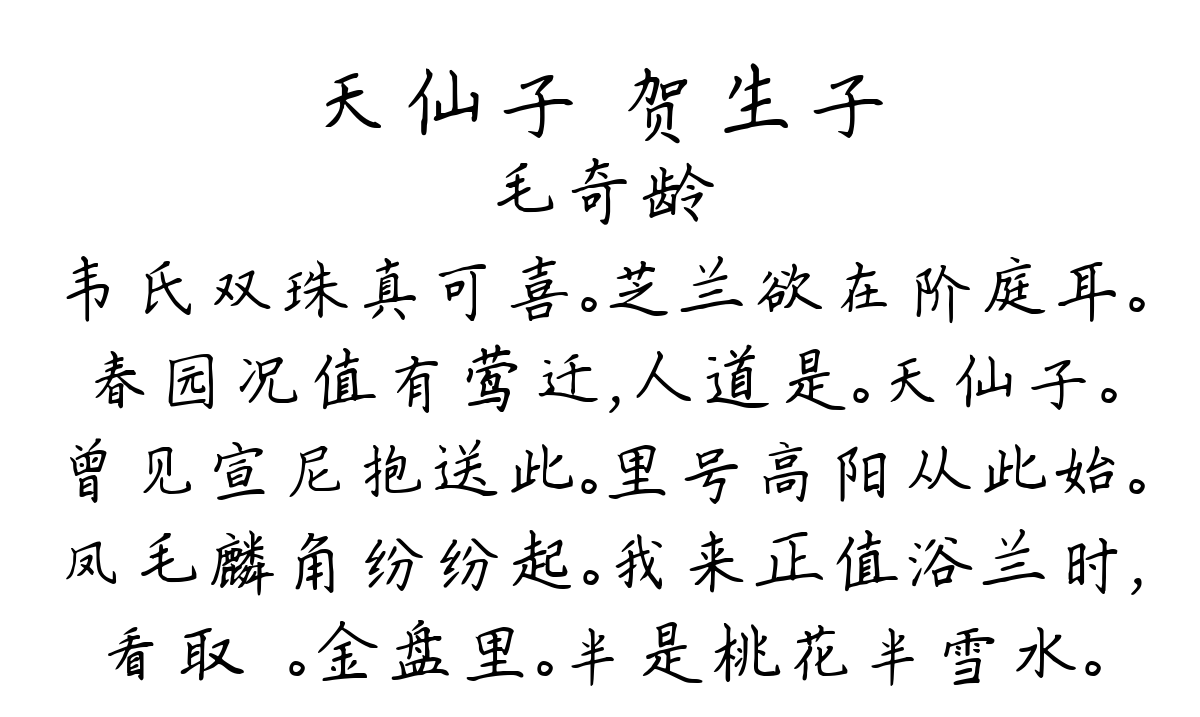 天仙子 贺生子
毛奇龄
韦氏双珠真可喜。芝兰欲在阶庭耳。
春园况值有莺迁,人道是。天仙子。
曾见宣尼抱送此。里号高阳从此始。
凤毛麟角纷纷起。我来正值浴兰时,
看取 。金盘里。半是桃花半雪水。